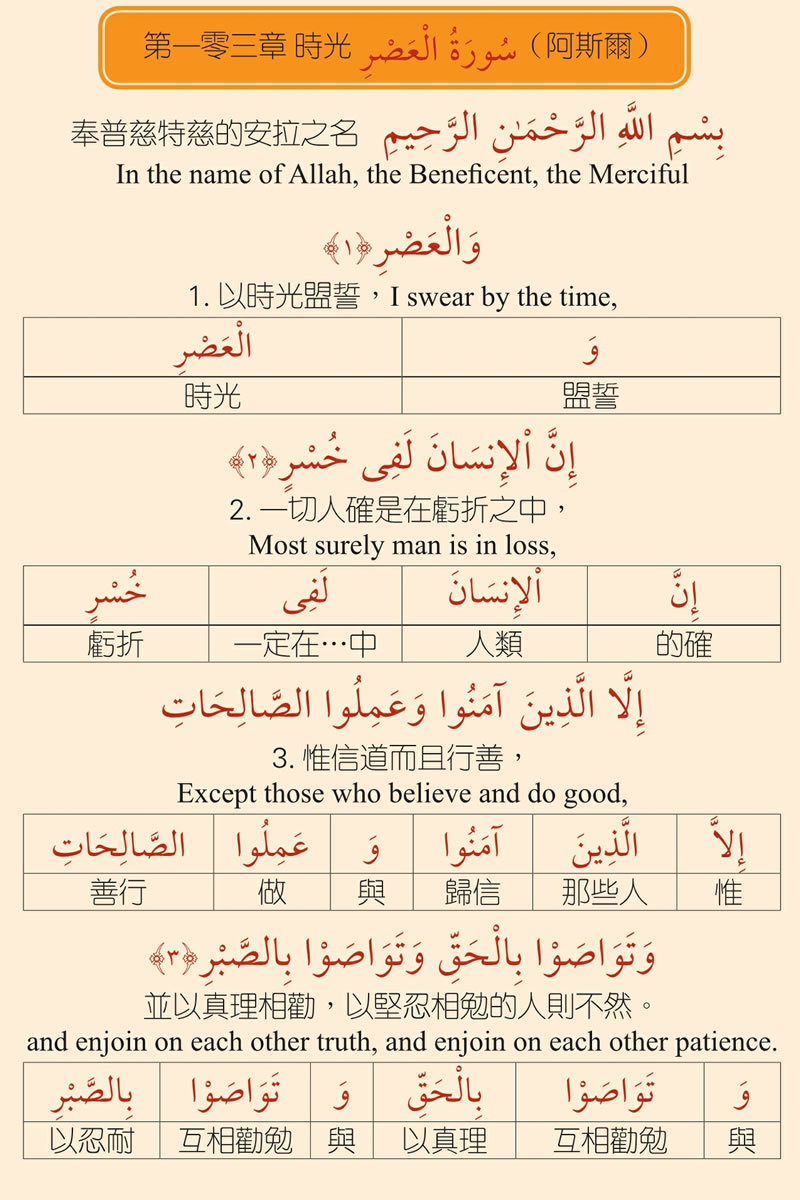 第一零三章 時光 سُورَةُ الْعَصْرِ（阿斯爾）
奉普慈特慈的安拉之名 بِسْمِ اللَّهِ الرَّحْمَـٰنِ الرَّحِيمِ
In the name of Allah, the Beneficent, the Merciful
وَالْعَصْرِ ﴿١﴾
1. 以時光盟誓，I swear by the time,
وَ الْعَصْرِ
時光 盟誓
إِنَّ اْلإِنسَانَ لَفِى خُسْرٍ ﴿٢﴾
2. 一切人確是在虧折之中，
Most surely man is in loss,
إِنَّ اْلإِنسَانَ لَفِى خُسْرٍ
虧折 一定在…中 人類 的確
إِلَّا الَّذِينَ آمَنُوا وَعَمِلُوا الصَّالِحَاتِ
3. 惟信道而且行善，
Except those who believe and do good,
إِلاَّ الَّذِينَ آمَنُوا وَ عَمِلُوا الصَّالِحَاتِ
善行 做 與 歸信 那些人 惟
وَتَوَاصَوْا بِالْحَقِّ وَتَوَاصَوْا بِالصَّبْرِ ﴿٣﴾
並以真理相勸，以堅忍相勉的人則不然。
and enjoin on each other truth, and enjoin on each other patience.
وَ تَوَاصَوْا بِالْحَقِّ وَ تَوَاصَوْا بِالصَّبْرِ
以忍耐 互相勸勉 與 以真理 互相勸勉 與